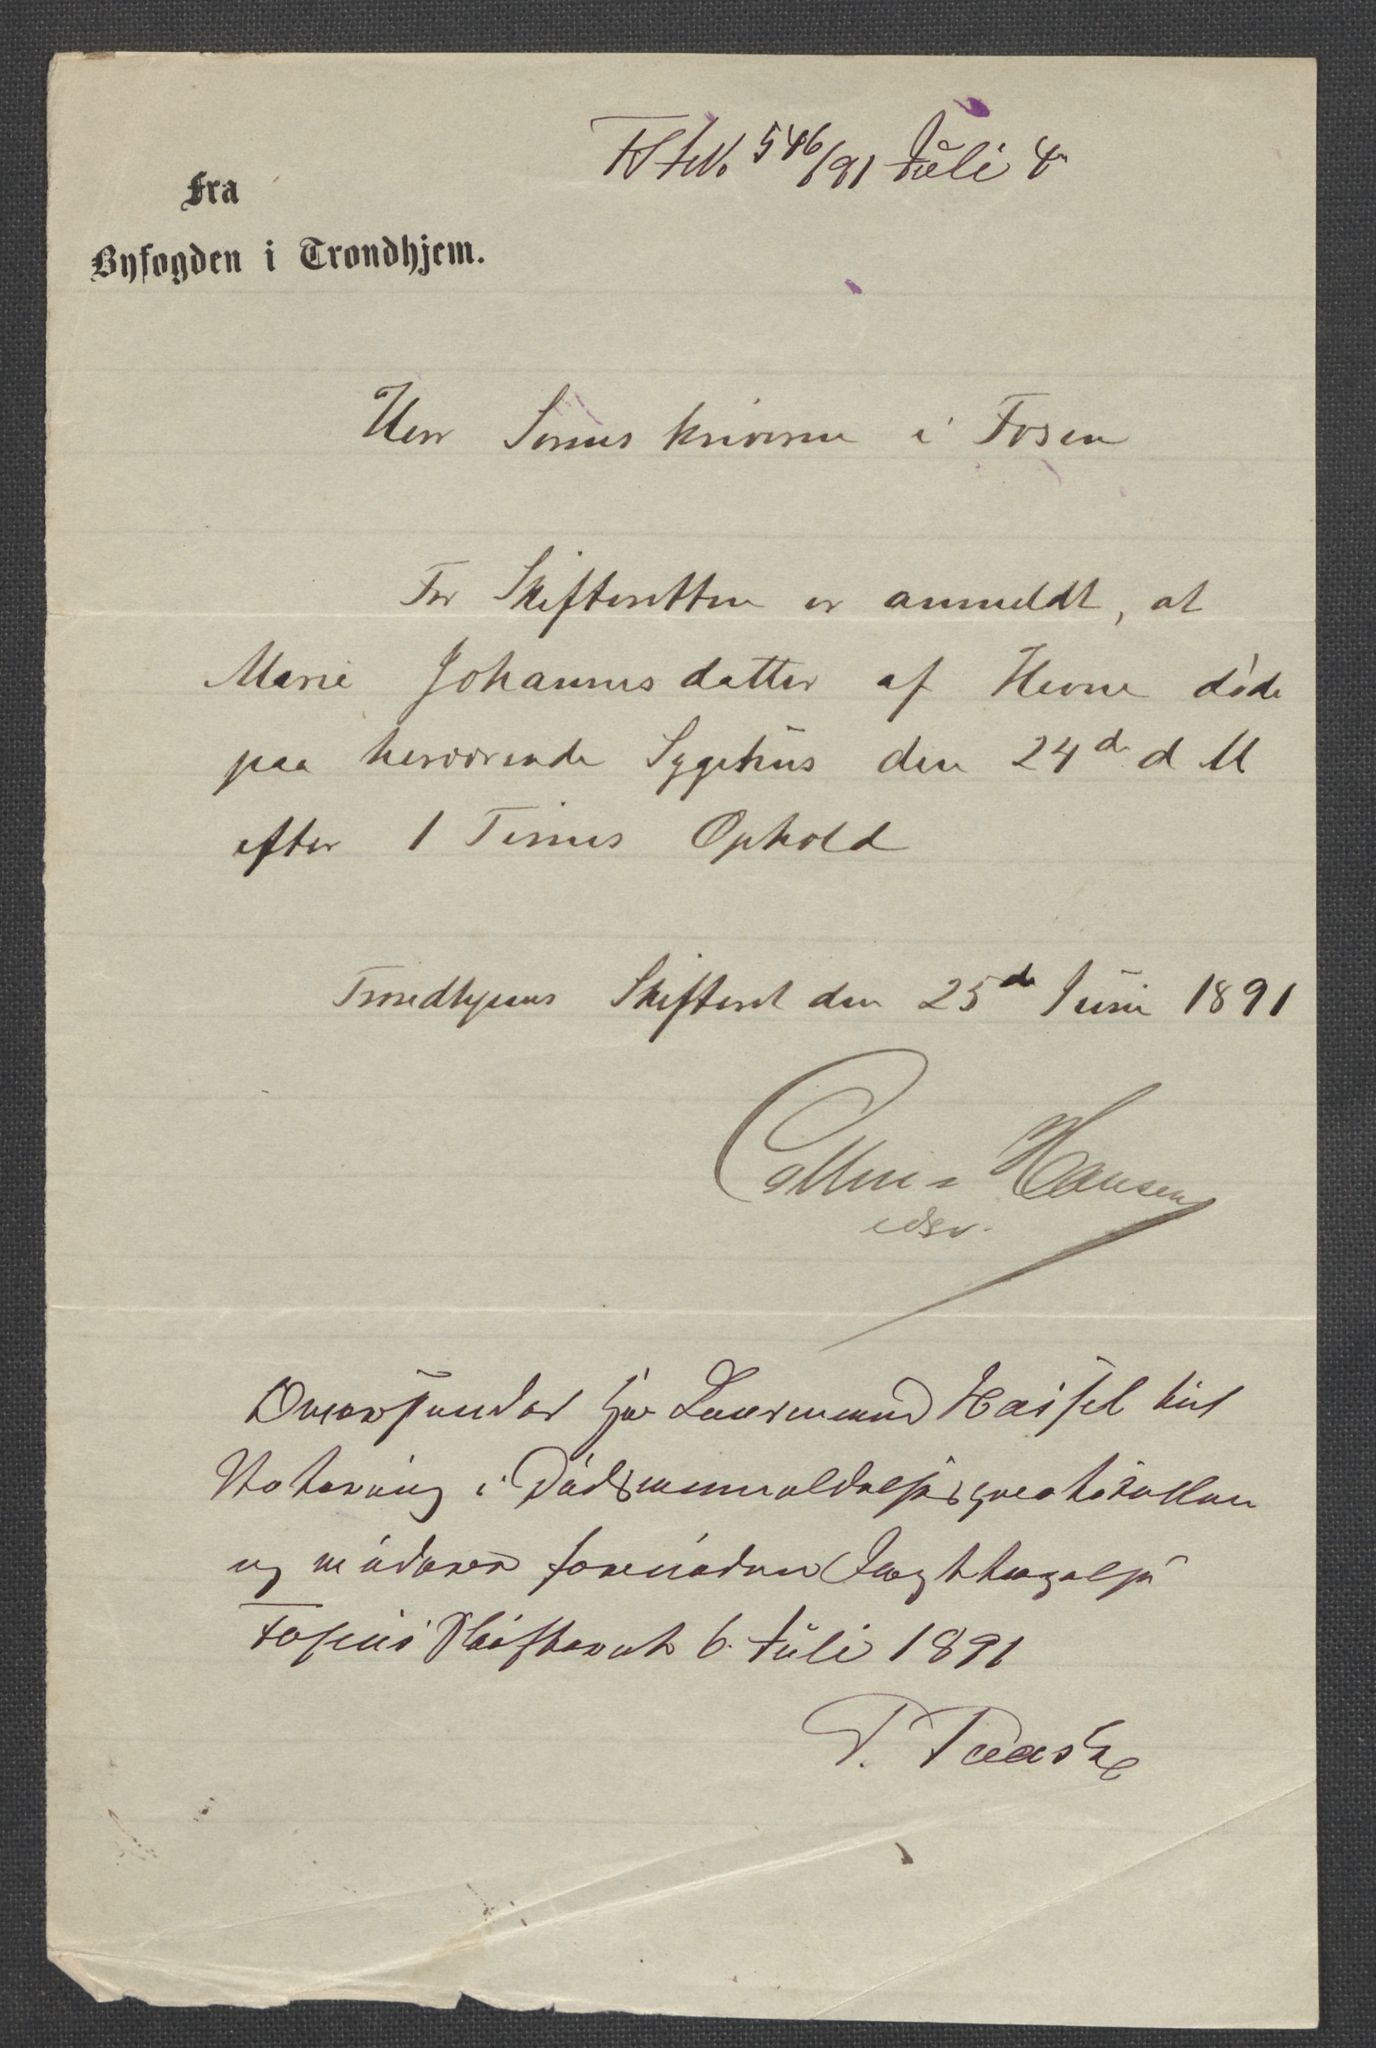 546/91 Juli 4
Fra
Byfogden i Trondhjem.
Herr Sorenskriveren i Fosen
For Skifteretten er anmeldt, at
Marie Johannesdatter af Hevne døde
paa herværende Sygehus den 24de d M
efter 1 Times Ophold
Trondhjems Skifteret den 25de Juni 1891
Collin Hansen
edsv.
Oversendes Hr Lensmand Hassel til
Notering i Dødsanmeldelsesprotokollen
og videre fornøden Iagttagelse
Fosens Skifteret 6. Juli 1891